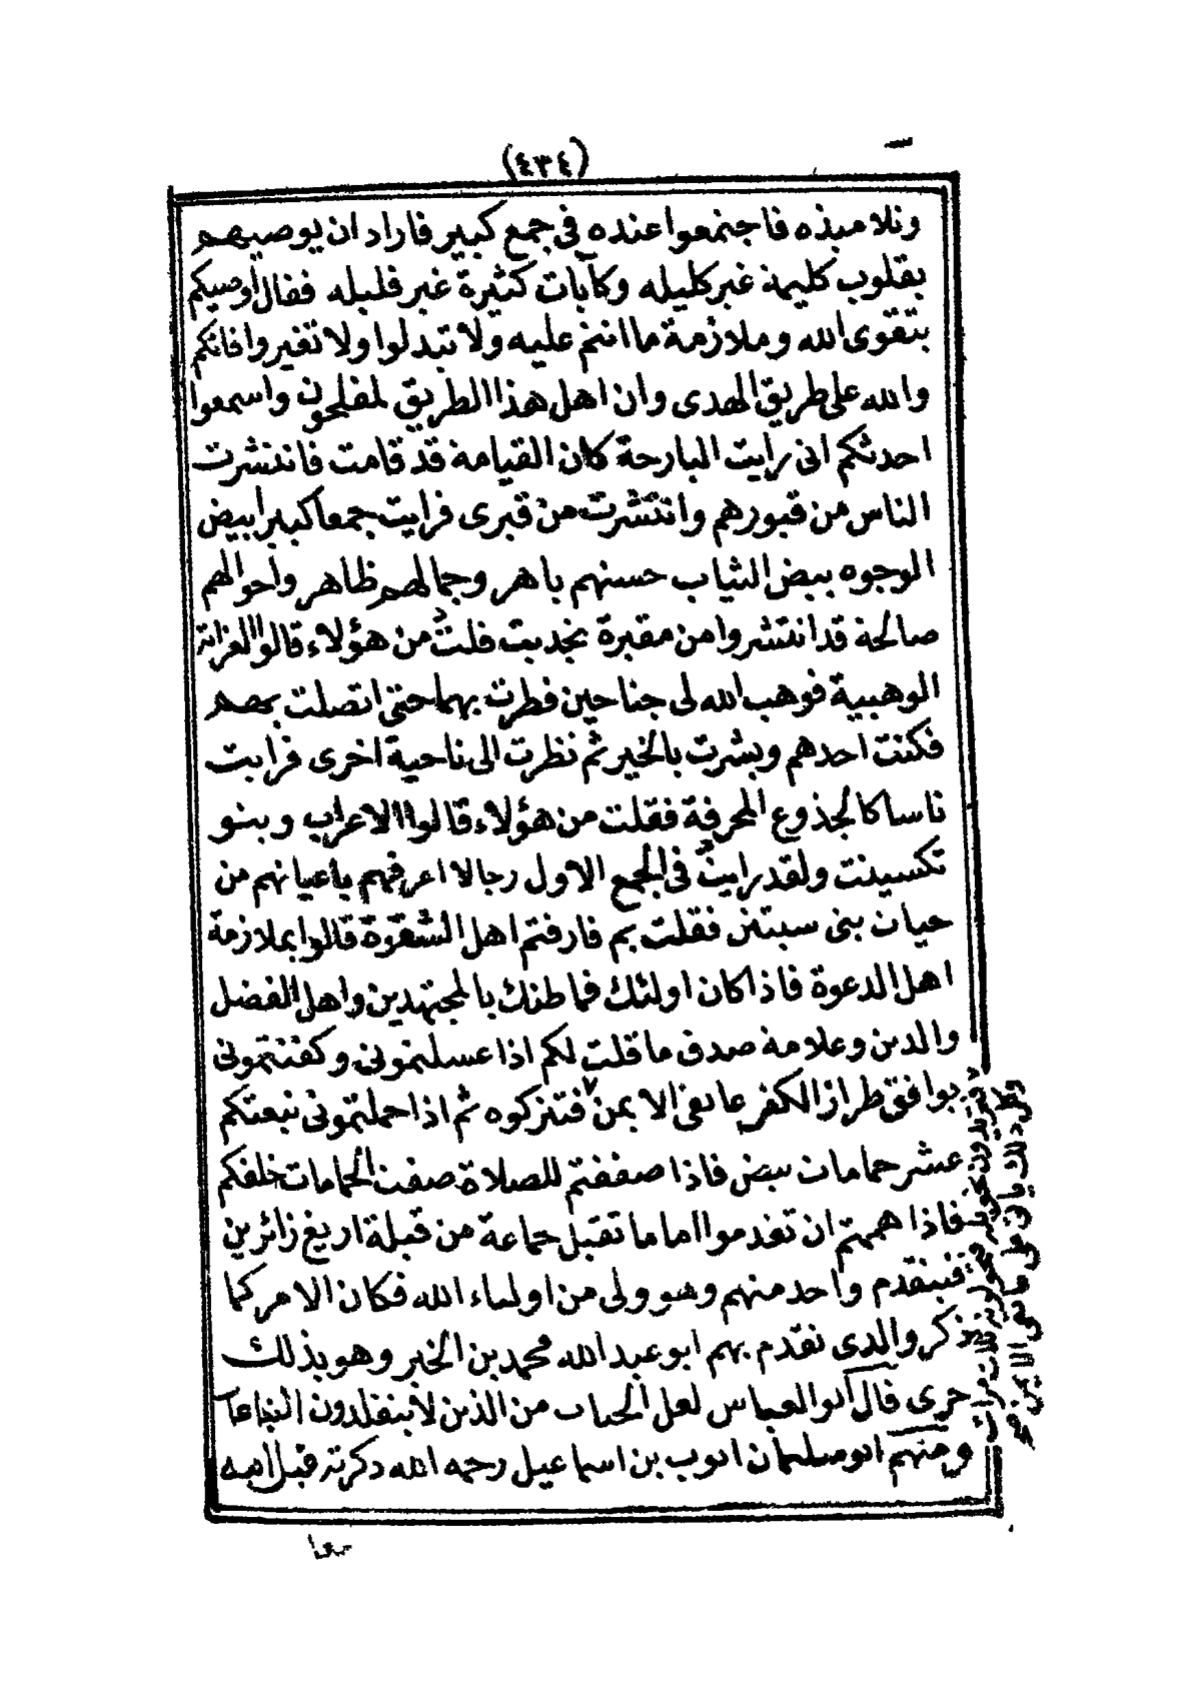 (٤٣٤)
وتلاميذه فاجتمعوا عنده في جمع كبير فاراد ان يوصيهم
بقلوب كليمة غير كليله وكآبات كثيرة غير قليله فقال اوصيكم
بتقوى الله وملازمة ما انتم عليه ولا تبدلوا ولا تغيروا فانكم
والله على طريق الهدى وان اهل هذا الطريق لمفلحون واسمعوا
احدثكم انى رايت البارحة كان القيامة قد قامت فانتشرت
الناس من قبورهم وانتشرت من قبرى فرايت جمعا كبيرا بيض
الوجوه بيض الثياب حسنهم باهر وجمالهم ظاهر واحوالهم
صالحة قد انتشروا من مقبرة بخديت قلت من هؤلاء قالوا العزابة
الوهبية فوهب الله لى جناحين فطرت بهما حتى اتصلت بهم
فكنت احدهم وبشرت بالخير ثم نظرت الى ناحية اخرى فرايت
ناسا كالجذوع المحرفة فقلت من هؤلاء قالوا الاعراب وبنو
تكسينت ولقد رايت فى الجمع الاول رجالا اعرفهم باعيانهم من
حيان بنى سبتتن فقلت بم فارقتم اهل الشقوة قالوا بملازمة
اهل الدعوة فاذا كان اولئك فما ظنك بالمجتهدين واهل الفضل
والدين وعلامة صدق ما قلت لكم اذا غسلتمونى وكفنتمونى
يوافق طراز الكفن عاتقى الايمن فتتركوه ثم اذا حملتمونى تبعتكم
عشر حمامات بيض فاذا صففتم للصلاة صفت الحمامات خلفكم
فاذا هممتم ان تقدموا اماما تقبل جماعة من قبلة اريغ زائرين
فيتقدم واحد منهم وهو ولى من اولياء الله فكان الامر كما
ذكر والذى تقدم بهم ابو عبد الله محمد بن الخير وهو بذلك
حرى قال ابو العباس لعل الحباب من الذين لا يتقلدون التباعات
ومنهم ابو سليمان ايوب بن اسماعيل رحمه الله ذكرته قبل ابيه
فتريدون تحويله ثلاث مرات
وكل ذلك ياتى على عاتقى الايمن صح